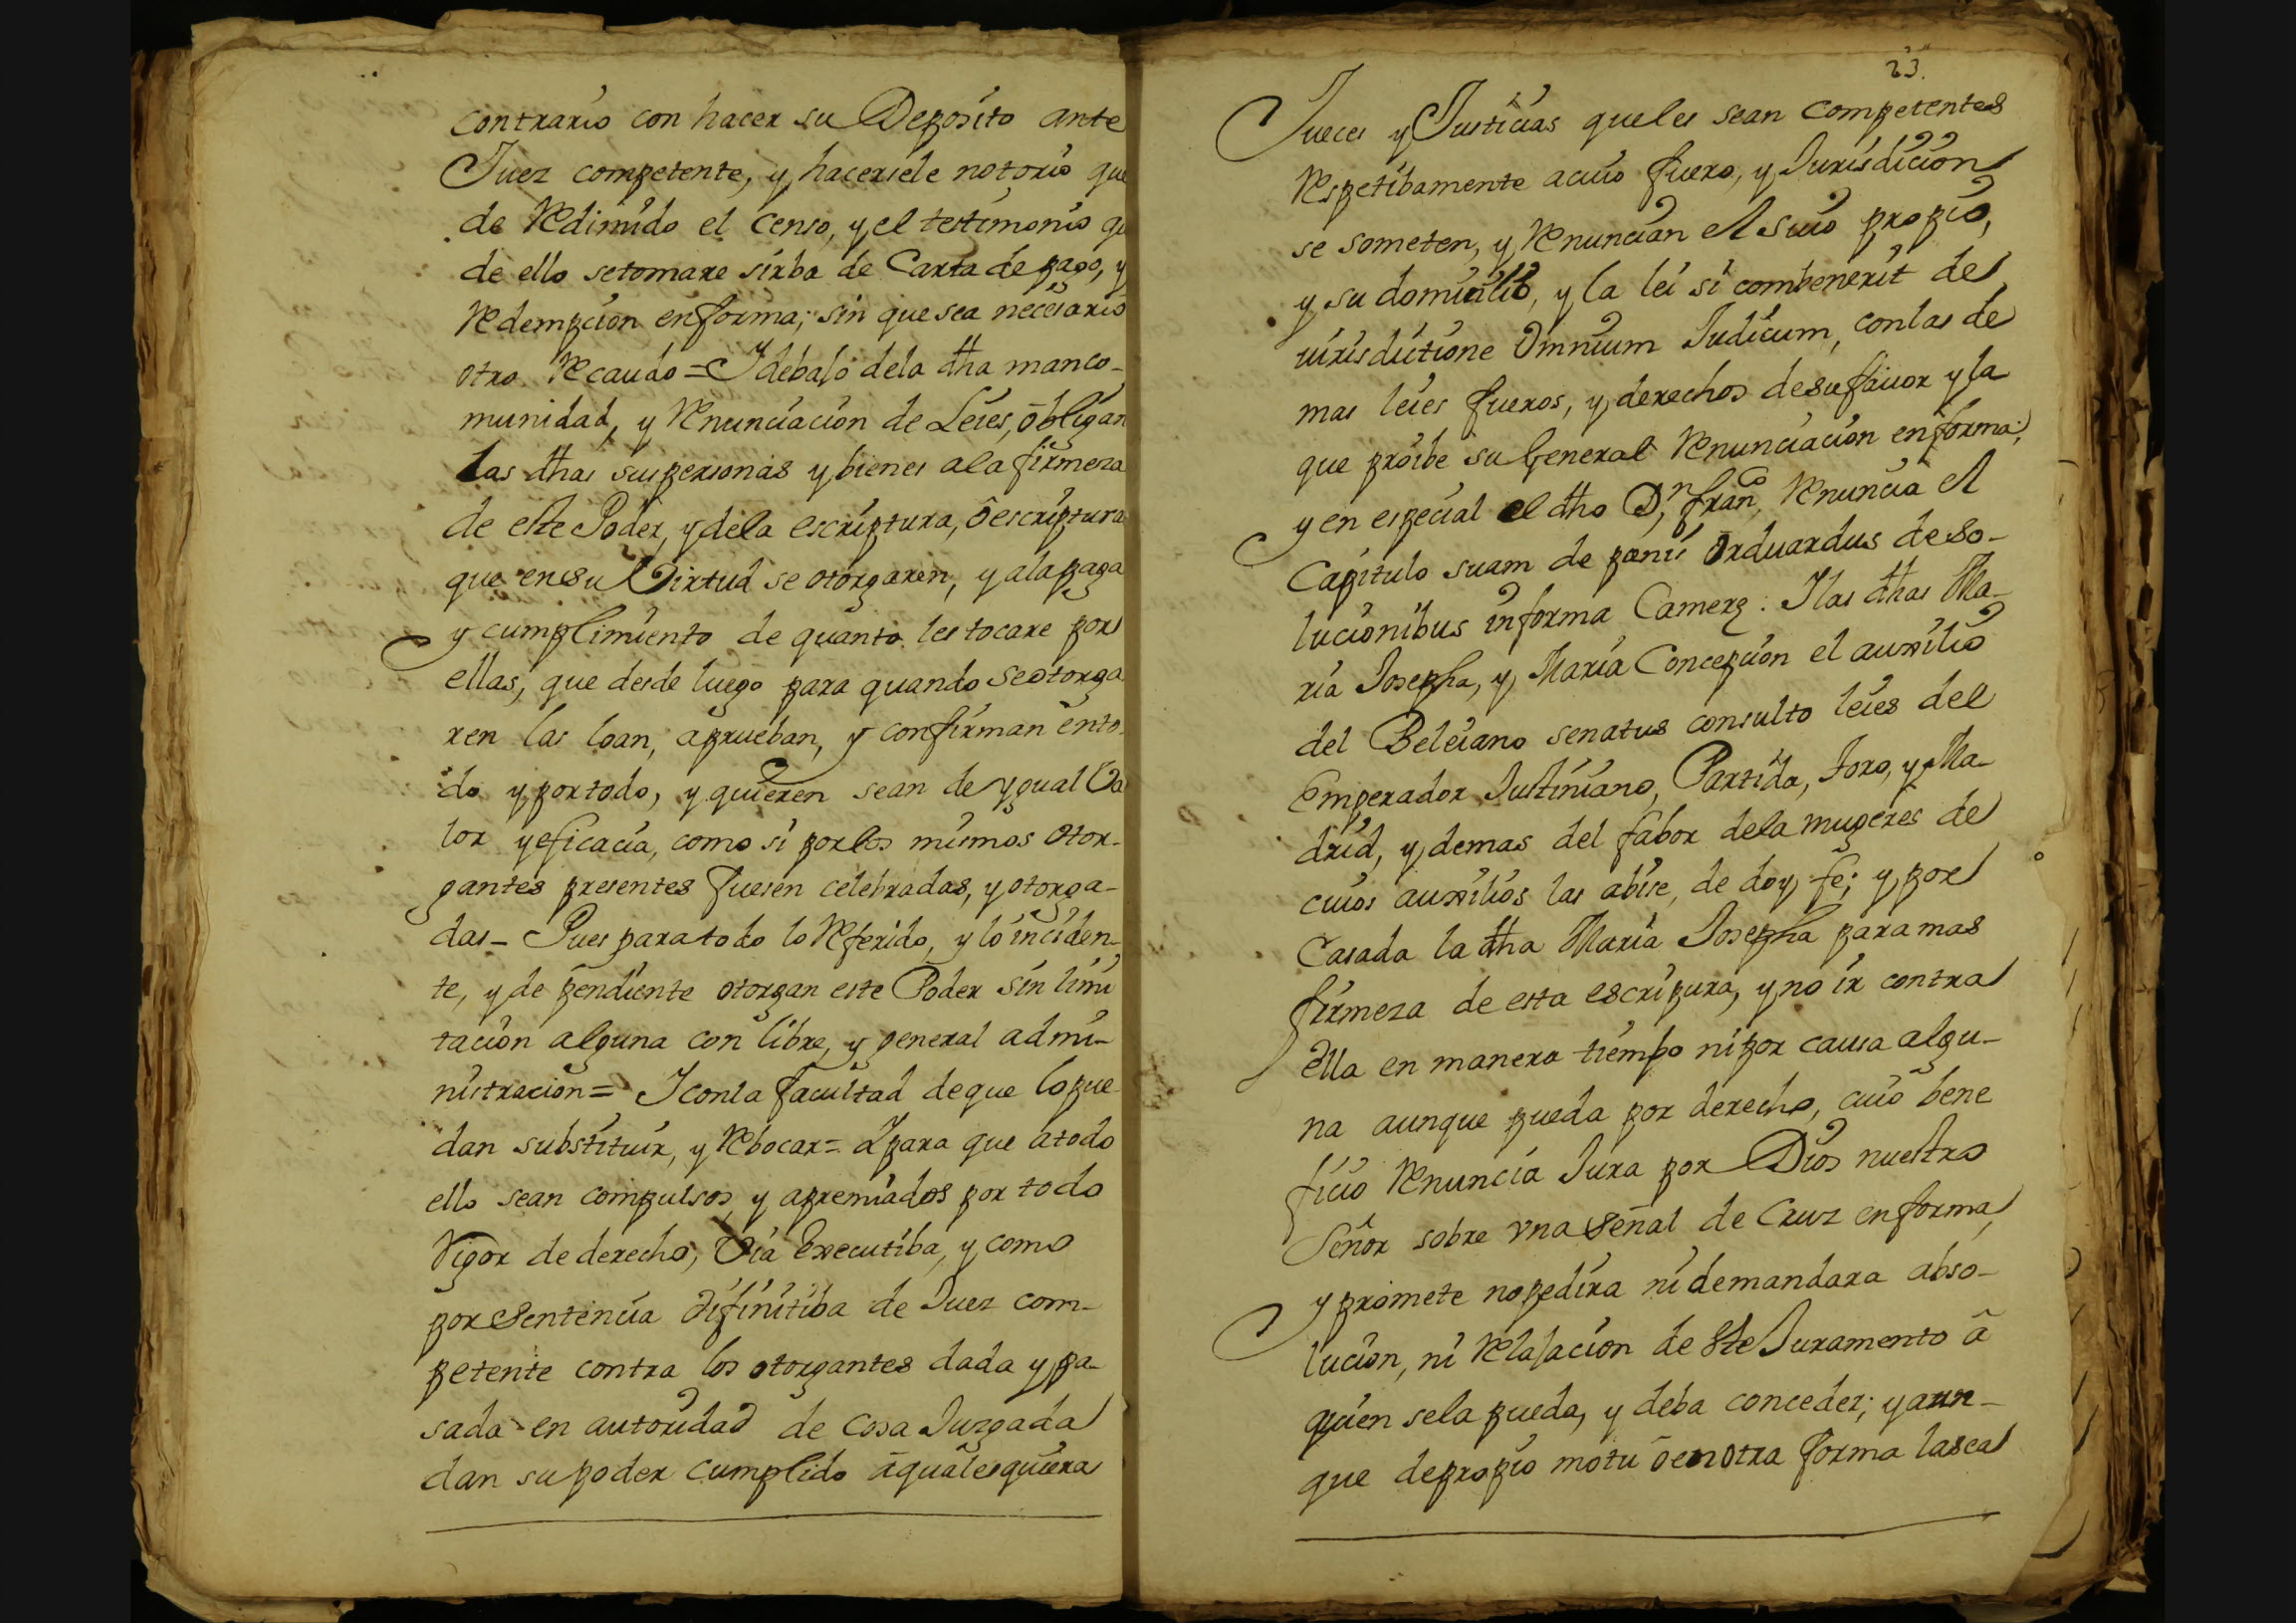 contrario con hacer su Deposito ante
Juez competente, y hacersele notorio que
de Redimido el censo, y el testimonio qu
de ello setomare sirba de Carta de pago, y
Redempcion enforma; sin que sea necesario
otro Recaudo = I debajo dela dha manco-
munidad, y Renunciacion de Leies, obligan
las dhas suspersonas y bienes ala firmeza
de este Poder, y dela escriptura, ô escriptura
que ensu Virtud se otorgaren, y ala paga
y cumplimiento de quanto les tocare por
ellas, que desde luego para quando seotorga
ren las loan, aprueban, y confirman ento-
do y portodo, y quieren sean de ygual Va
lor y eficacia, como si porlos mismos otor-
gantes presentes fuesen celebradas, y otorga-
das - Pues paratodo lo Referido, y lo inciden-
te, y de pendiente otorgan este Poder sin limi
tacion alguna con libre, y general admi-
nistracion = I conla facultad deque lo pue
dan substituir, y Rebocar = I para que atodo
ello sean compulsos, y apremiados por todo
Vigor de derecho, Via Executiba, y como
por Sentencia difinitiba de Juez com-
petente contra los otorgantes dada y pa-
sada en autoridad de cosa Juzgada
dan supoder cumplido â qualesquiera
23.
Jueces y Justicias queles sean competentes
Respetibamente acuio fuero, y Jurisdicion
se someten, y Renuncian el suio propio,
y su domicilio, y la lei si combenerit de
iurisdictione Omnium Judicum, conlas de
mas leies fueros, y derechos desufauor y la
que proibe su General Renunciacion enforma;
y en especial el dho Dn, franco, Renuncia el
Capitulo suam de penis Orduardus de so-
lucionibus informa Camerę : I las dhas Ma-
ria Josepha, y Maria Concepcion el auxilio
del Beleiano senatus consulto leies del
Emperador Justiniano, Partida, Toro, y Ma-
drid, y demas del fabor dela mugeres de
cuios auxilios las abise, de doy fe; y por
Casada la dha Maria Josepha para mas
firmeza de esta escripura, y no ir contra
ella en manera tiempo nipor causa algu-
na aunque pueda por derecho, cuio bene
ficio Renuncia Jura por Dios nuestro
Señor sobre vna señal de Cruz enforma,
y promete nopedira ni demandara abso-
lucion, ni Relajacion de Ste Juramento â
quien sela pueda, y deba conceder; y aun-
que depropio motu ô en otra forma lasea